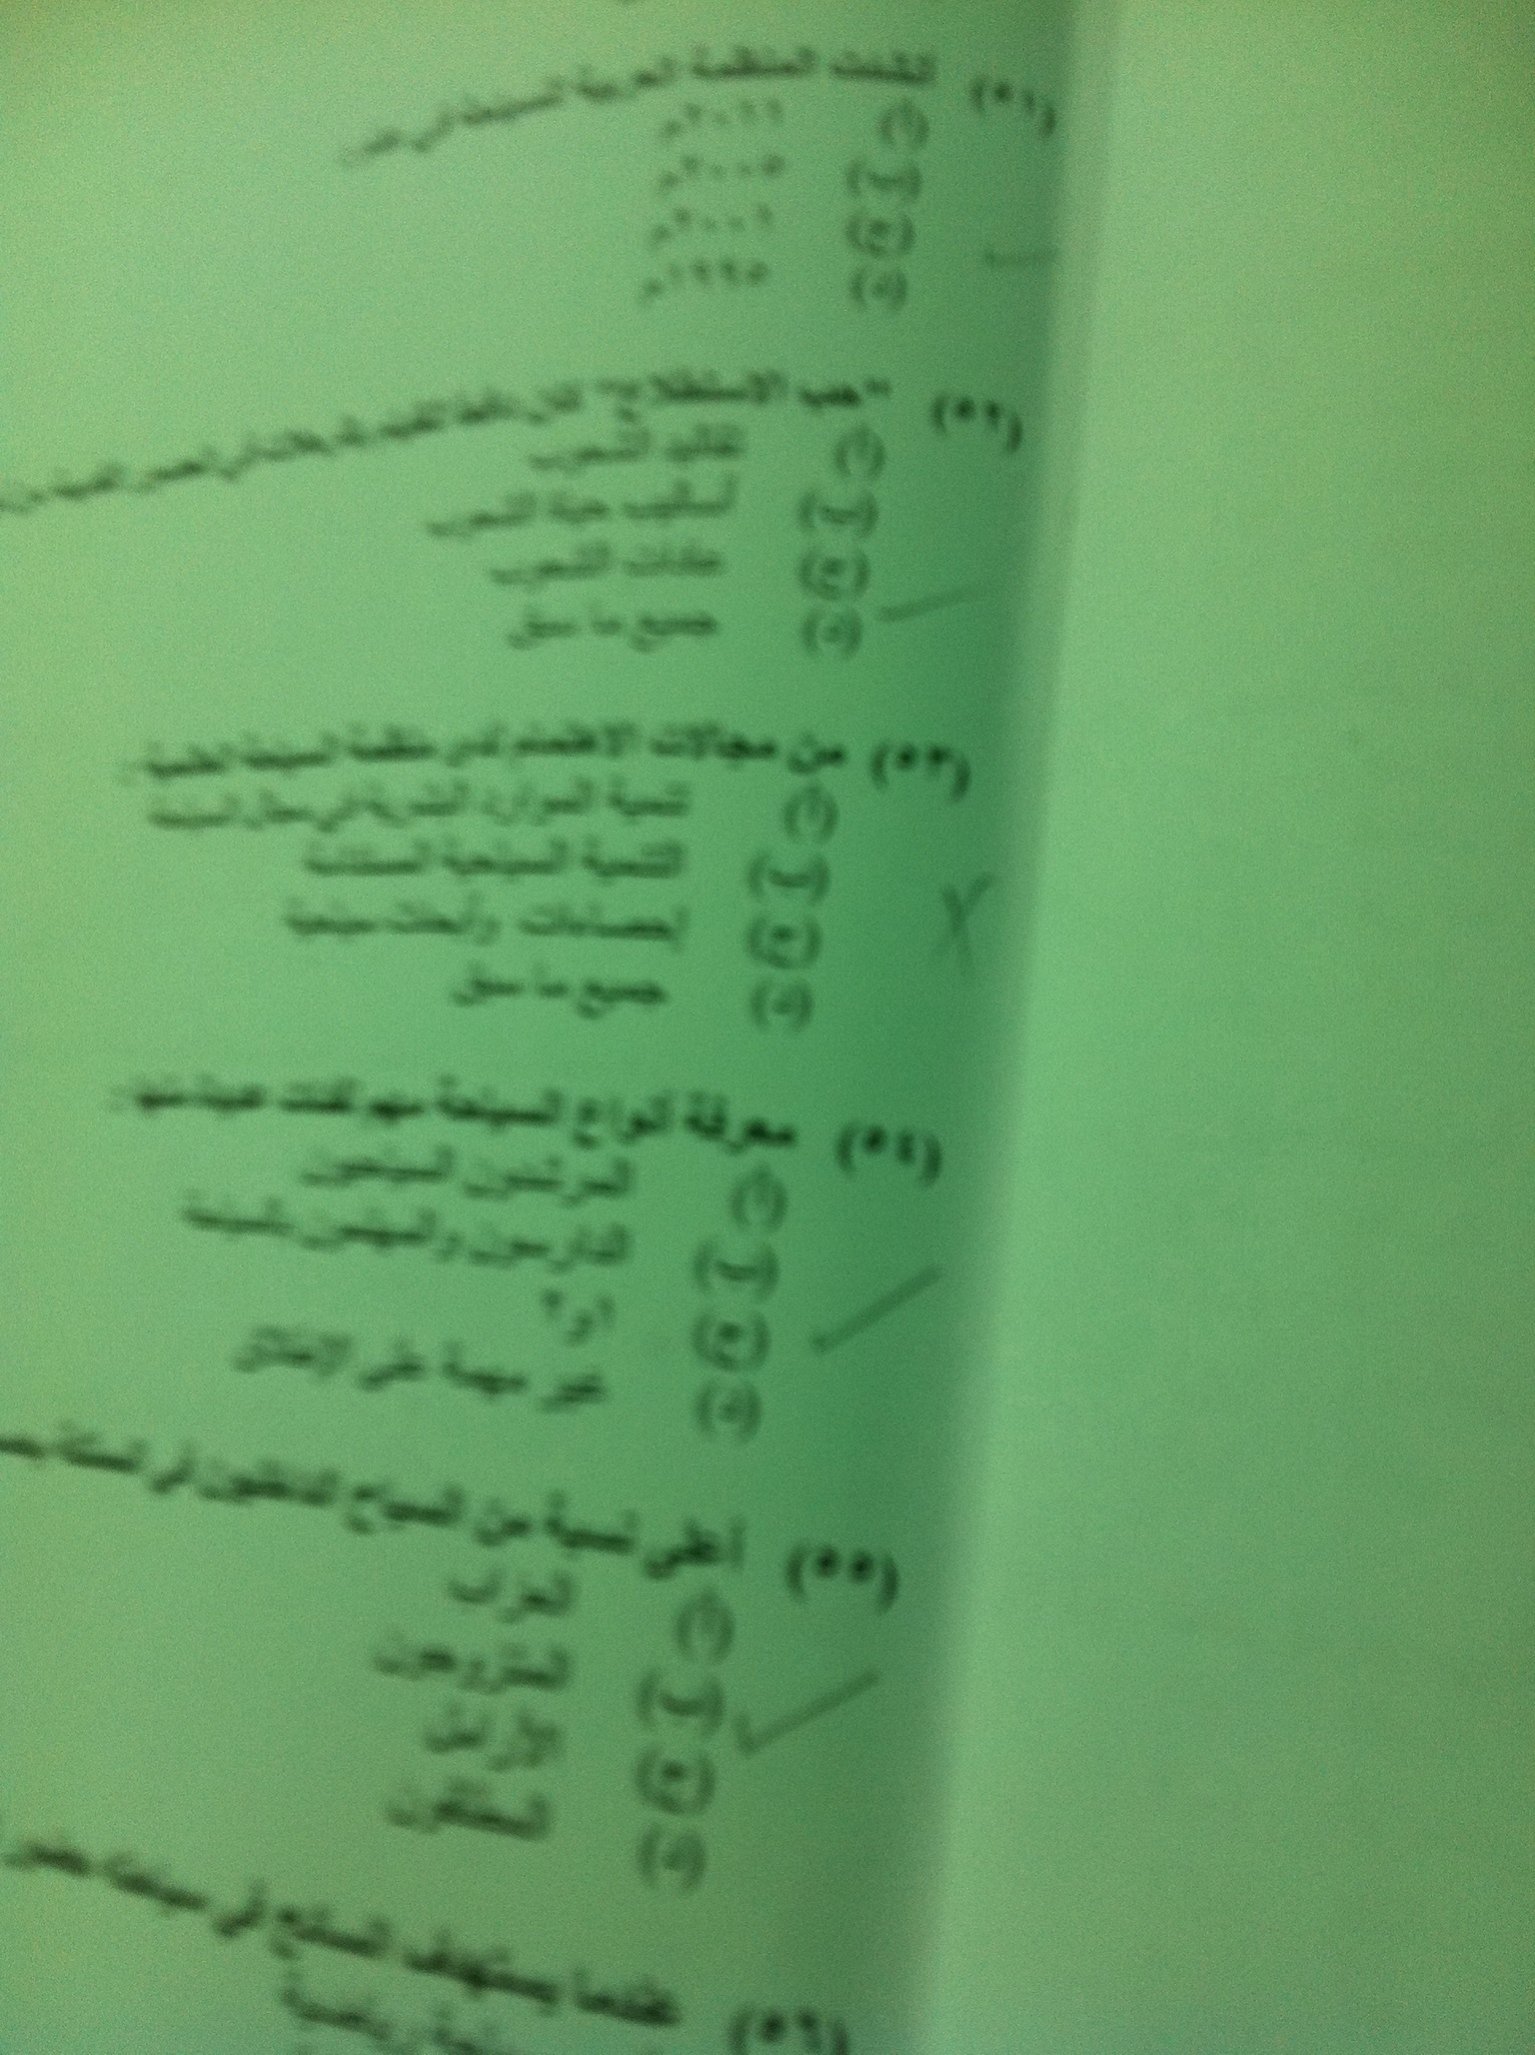 (٥١) أنشئت المنظمة العربية للسياحة في عام
(أ) ٢٠١١م
(ب) ٢٠٠٥م
(ج) ٢٠٠٦م
(د) ١٩٩٥م
(٥٢) "حب الاستطلاع" كان دافعا في
(أ) تقاليد الشعوب
(ب) أساليب حياة الشعوب
(ج) عادات الشعوب
(د) جميع ما سبق
(٥٣) من مجالات الاهتمام لدى منظمة السياحة العالمية
(أ) تنمية الموارد البشرية في مجال السياحة
(ب) التنمية السياحية المستدامة
(ج) إحصاءات وأبحاث سياحية
(د) جميع ما سبق
(٥٤) معرفة أنواع السياحة مهم لفئات عديدة منها
(أ) المرشدون السياحيون
(ب) الدارسون والمهتمون بالسياحة
(ج) ١و٢
(د) غير مهمة على الإطلاق
(٥٥) أعلى نسبة من السياح الداخليون في المملكة
(أ) العزاب
(ب) المتزوجون
(ج) الأرامل
(د) المطلقون
(٥٦) عندما يستهدف السائح في سياحته